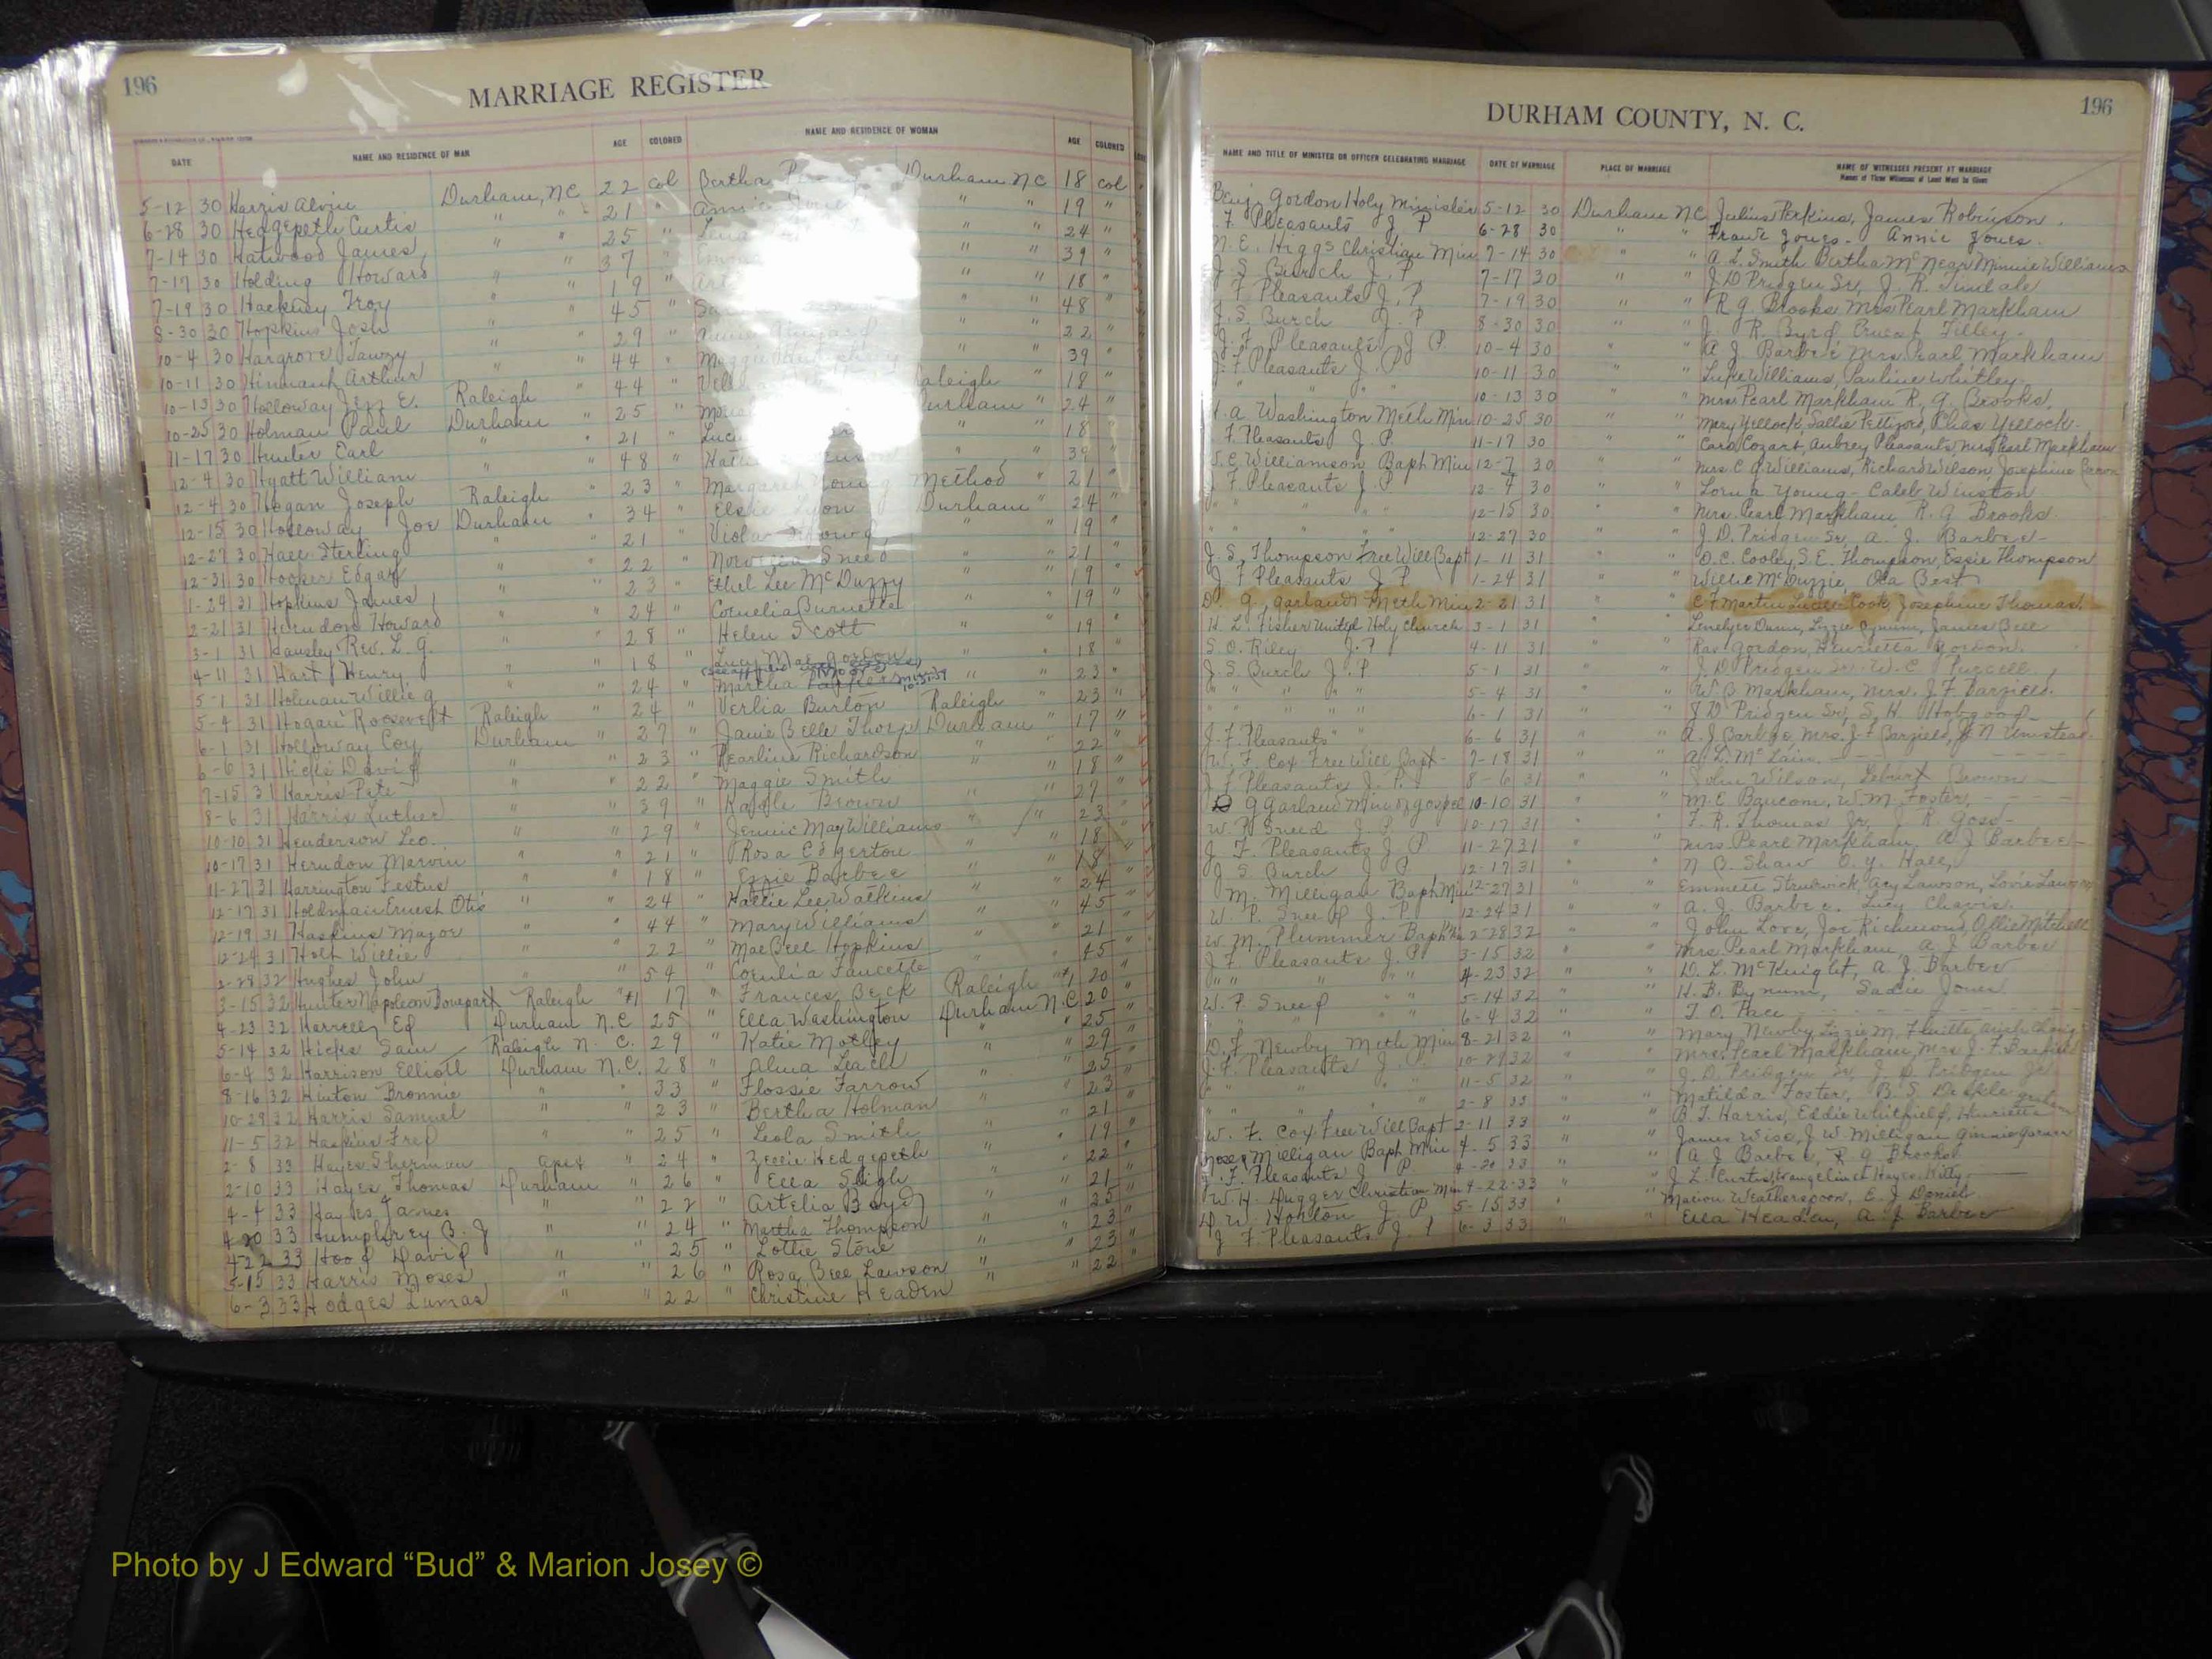 196
MARRIAGE REGISTER
DATE NAME AND RESIDENCE OF MAN AGE COLORED NAME AND RESIDENCE OF WOMAN AGE COLORED
5-12 30 Harris Alvin Durham, NC 22 col Bertha Durham NC 18 col
6-28 30 Hedgepeth Curtis " " 21 " Annie " " 19 "
7-14 30 Hatwood James " " 25 " Lena " " 24 "
7-17 30 Holding Howard " " 37 " " " 39 "
7-19 30 Hackney Troy " " 19 " " " 18 "
8-30 30 Hopkins Josh " " 45 " " " 48 "
10-4 30 Hargrove Tawzy " " 29 " Annie " " 22 "
10-11 30 Hinnant Arthur " " 44 " Maggie " " 39 "
10-13 30 Holloway Jezz E. Raleigh " 44 " Raleigh " 18 "
10-25 30 Holman Paul Durham " 25 " Durham " 24 "
11-17 30 Hunter Earl " " 21 " " " 18 "
12-4 30 Hyatt William " " 48 " " " 39 "
12-4 30 Hogan Joseph Raleigh " 23 " Margaret Young Method " 21 "
12-15 30 Holloway Joe Durham " 34 " Elsie Lyon Durham " 24 "
12-27 30 Hall Sterling " " 21 " Viola Young " " 19 "
12-31 30 Hooker Edgar " " 22 " Sneed " " 21 "
1-24 31 Hopkins James " " 23 " Ethel Lee McDuzzy " " 19 "
2-21 31 Herndon Howard " " 24 " Cornelia Burnette " " 19 "
3-1 31 Hansley Rev. L. G. " " 28 " Helen Scott " " 19 "
4-11 31 Hart Henry " " 18 " Lucy Mae Gordon " " 18 "
5-1 31 Holman Willie G " " 24 " Martha " " 23 "
5-4 31 Hogan Roosevelt Raleigh " 24 " Verlia Burton Raleigh " 23 "
6-1 31 Holloway Coy Durham " 27 " Janie Belle Thorp Durham " 17 "
6-6 31 Hicks David " " 23 " Pearline Richardson " " 22 "
7-15 31 Harris Pete " " 22 " Maggie Smith " " 18 "
8-6 31 Harris Luther " " 39 " Brown " " 27 "
10-10 31 Henderson Leo. " " 29 " Jennie May Williams " " 23 "
10-17 31 Herndon Marvin " " 21 " Rosa Edgerton " " 18 "
11-27 31 Harrington Festus " " 18 " Ezzie Barbee " " 18 "
12-17 31 Holdman Ernest Otis " " 24 " Hattie Lee Watkins " " 24 "
12-19 31 Haskins Major " " 44 " Mary Williams " " 45 "
12-24 31 Holt Willie " " 22 " Mae Bell Hopkins " " 21 "
2-28 32 Hughes John " " 54 " Cornlia Faucette " " 45 "
3-15 32 Hunter Napoleon Bonepart Raleigh #1 17 " Frances Beck Raleigh #1 20 "
4-23 32 Harrell Ed Durham N.C 25 " Ella Washington Durham N.C 20 "
5-14 32 Hicks Sam Raleigh N. C. 29 " Katie Motley " 25 "
6-4 32 Harrison Elliott Durham N.C. 28 " Alma Leach " " 29 "
8-16 32 Hinton Bronnie " " 33 " Flossie Farrow " " 25 "
10-29 32 Harris Samuel " " 23 " Bertha Holman " " 23 "
11-5 32 Haskins Fred " " 25 " Leola Smith " " 21 "
2-8 33 Hayes Sherman Apex " 24 " Zellie Hedgepeth " " 19 "
2-10 33 Hayes Thomas Durham " 26 " Ella Sligh " " 22 "
4-4 33 Hayes James " " 22 " Artelia Boyd " " 21 "
4-20 33 Humphrey B. J " " 24 " Martha Thompson " " 25 "
4-22 33 Hood David " " 25 " Lottie Stone " " 23 "
5-15 33 Harris Moses " " 26 " Rosa Bell Lawson " " 23 "
6-3 33 Hodges Dumas " " 22 " Christine Headen " " 22 "
DURHAM COUNTY, N. C.
196
NAME AND TITLE OF MINISTER OR OFFICER CELEBRATING MARRIAGE DATE OF MARRIAGE PLACE OF MARRIAGE NAME OF WITNESSES PRESENT AT MARRIAGE
Names of Three Witnesses at Least Must be Given
Benj. Gordon Holy Minister 5-12 30 Durham NC Julius Perkins, James Robinson.
J. F. Pleasants J P 6-28 30 " " Frank Jones - Annie Jones.
N. E. Higgs Christian Min 7-14 30 " " A. L. Smith Bertha McNear Minnie Williams
J. S. Burch J. P 7-17 30 " " J. D Pridgen Sr, J. R. Tindale
J. F. Pleasants J. P 7-19 30 " " R G Brooks Mrs Pearl Markham
J. S. Burch J. P 8-30 30 " " J. R. Byrd Ernest Tilley-
J. F. Pleasants J P 10-4 30 " " A J Barbee Mrs. Pearl Markham
J. F. Pleasants J. P 10-11 30 " " Luke Williams, Pauline Whitley
" " 10-13 30 " " Mrs Pearl Markham R. G. Brooks.
H. A. Washington Meth Min 10-25 30 " " Mary Yellock, Sallie Pettiford, Elias Yellock.
J. F. Pleasants J. P. 11-17 30 " " Cara Cozart, Aubrey Pleasants, Mrs Pearl Markham
W. C. Williamson Bapt Min 12-7 30 " " Mrs. C. J. Williams, Richard Wilson, Josephine
J. F. Pleasants J. P 12-4 30 " " Lorna Young - Caleb Winston
" " 12-15 30 " " Mrs. Pearl Markham, R. G Brooks.
" " 12-27 30 " " J. D. Pridgen Sr, A. J. Barbee-
J. S. Thompson Free Will Bapt 1-11 31 " " O. C. Cooley, S. E. Thompson, Essie Thompson
J. F Pleasants J P 1-24 31 " " Willie McDuzzie, Ola Best
D. G. Garland Meth Min 2-21 31 " " C. F. Martin Lucille Cook, Josephine Thomas
H. L. Fisher United Holy Church 3-1 31 " " Dunn, Lizzie Bynum, James Bell
S. O. Riley J. P 4-11 31 " " Ray Gordon, Henrietta Gordon.
J. S. Burch J. P 5-1 31 " " J. D Pridgen Sr. W. C Purcell
" " " " 5-4 31 " " W. B. Markham, Mrs. J. F. Barfield.
" " " " 6-1 31 " " J D Pridgen Sr, S. H. Hobgood
J. F. Pleasants " 6-6 31 " " A. J Barbee, Mrs. J. F Barfield, J. N Umstead.
W. F. Cox Free Will Bapt- 7-18 31 " " A. L. McLain
J F Pleasants J. P. 8-6 31 " " John Wilson, Brown
D G Garland Min of gospel 10-10 31 " " M. E Baucom, W. M. Foster,
W. P Sneed J. P 10-17 31 " " F. R. Thomas Jr, J. R. Goss-
J F. Pleasants J P 11-27 31 " " Mrs Pearl Markham, A J Barbee
J S Burch J P 12-17 31 " " N B. Shaw O. Y. Hall,
M. Milligan Bapt Min 12-27 31 " " Emmett Strudwick, Acy Lawson, Lovie Lawson
W. P. Sneed J. P. 12-24 31 " " A. J. Barbee. Lucy Chavis
W M. Plummer Bapt Min 2-28 32 " " John Love, Joe Richmond, Ollie Mitchell
J F Pleasants J. P 3-15 32 " " Mrs. Pearl Markham, A J Barbee
" " " " 4-23 32 " " D. L. McKnight, A. J. Barbee
W. P Sneed " " 5-14 32 " " H. B. Bynum, Sadie Jones
" " 6-4 32 " " T. O. Pace
D. F Newby Meth Min 8-21 32 " " Mary Newby Lizzie M.
J. F Pleasants J. P. 10-29 32 " " Mrs. Pearl Markham, Mrs J. F. Barfield
" " 11-5 32 " " J. D. Pridgen Sr, J. D Pridgen Jr
" " 2-8 33 " " Matilda Foster, B. S.
W. F. Cox Free Will Bapt 2-11 33 " " B. T. Harris, Eddie Whitfield, Henrietta
Milligan Bapt Min 4-5 33 " " James Wise, J W Milligan Ginnie Garner
J. F. Pleasants J P. 4-20 33 " " A J Barbee, R. G Brooks
W. H. Dugger Christian Min 4-22-33 " " J L. Curtis,
D. W. Horton J. P 5-15 33 " " Marion Weatherspoon, E. J Daniel
J F Pleasants J. P 6-3 33 " " Ella Headen, A. J Barbee
Photo by J Edward “Bud” & Marion Josey ©